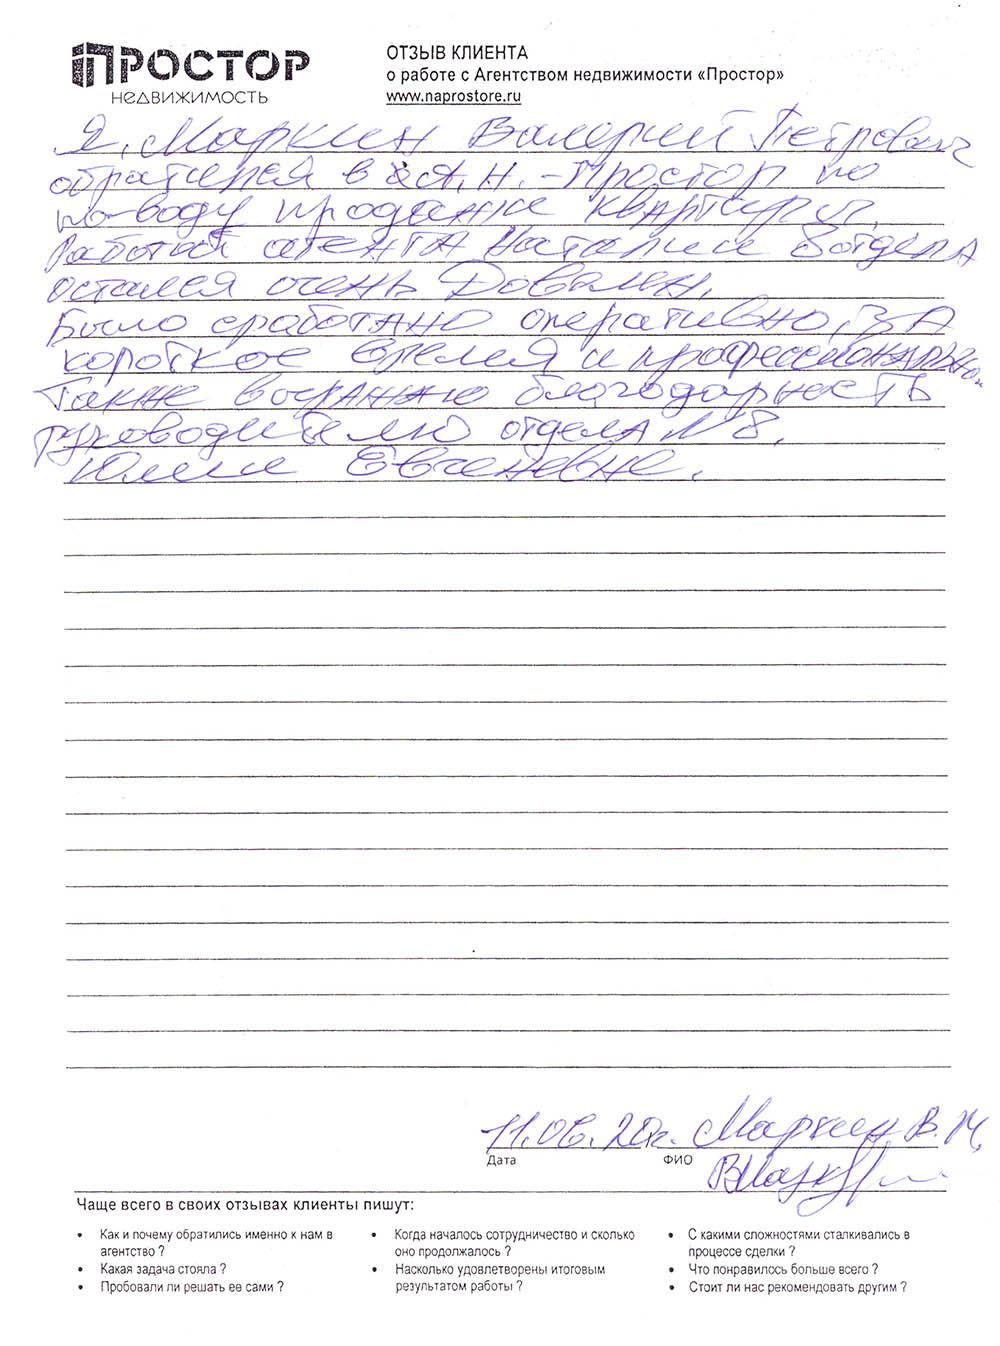 ПРОСТОР
НЕДВИЖИМОСТЬ
ОТЗЫВ КЛИЕНТА
о работе с Агентством недвижимости «Простор»
www.naprostore.ru
Я, Маркин Валерий Петрович
обратился в А.Н. - Простор по
по-воду продажи квартиры.
Работой агента Наталии 8 отдела
остался очень Доволен.
Было сработано оперативно, ЗА
короткое время и профессионально.
Также выражаю благодарность
руководителю отдела N 8.
Юлии Евгеневне.
11.06.20г. Маркин В.
Дата ФИО
Чаще всего в своих отзывах клиенты пишут:
• Как и почему обратились именно к нам в
агентство ?
• Какая задача стояла ?
• Пробовали ли решать ее сами ?
• Когда началось сотрудничество и сколько
оно продолжалось ?
• Насколько удовлетворены итоговым
результатом работы ?
• С какими сложностями сталкивались в
процессе сделки ?
• Что понравилось больше всего ?
• Стоит ли нас рекомендовать другим ?